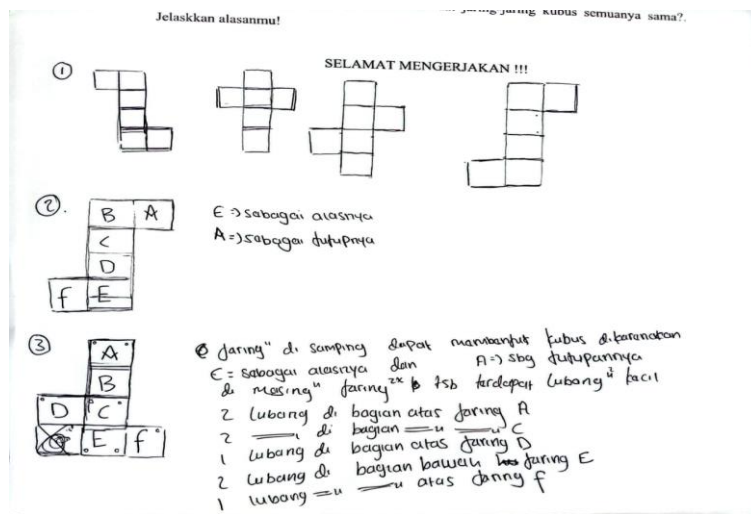 jaring jaring kubus semuanya sama?.
Jelaskkan alasanmu!
SELAMAT MENGERJAKAN !!!
①
②.
B A
C
D
f E
E => sabagai alasnya
A => sabagai tutupnya
③
A
B
D C
E f
Jaring" di samping dapat mambantuk kubus dikaranakan
E = sabagai alasnya dan A => sbg tutupannya
di masing" jaring²x tsb terdapat lubang² kacil
2 lubang di bagian atas jaring A
2 —"— di bagian —"— —"— C
1 lubang di bagian atas jaring D
2 lubang di bagian bawah jaring E
1 lubang —"— —"— atas jaring f